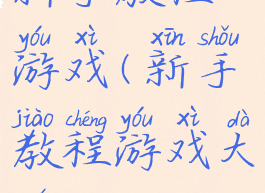 yóu xì xīn shǒu
游戏(新手
jiào chéng yóu xì dà
教程游戏大